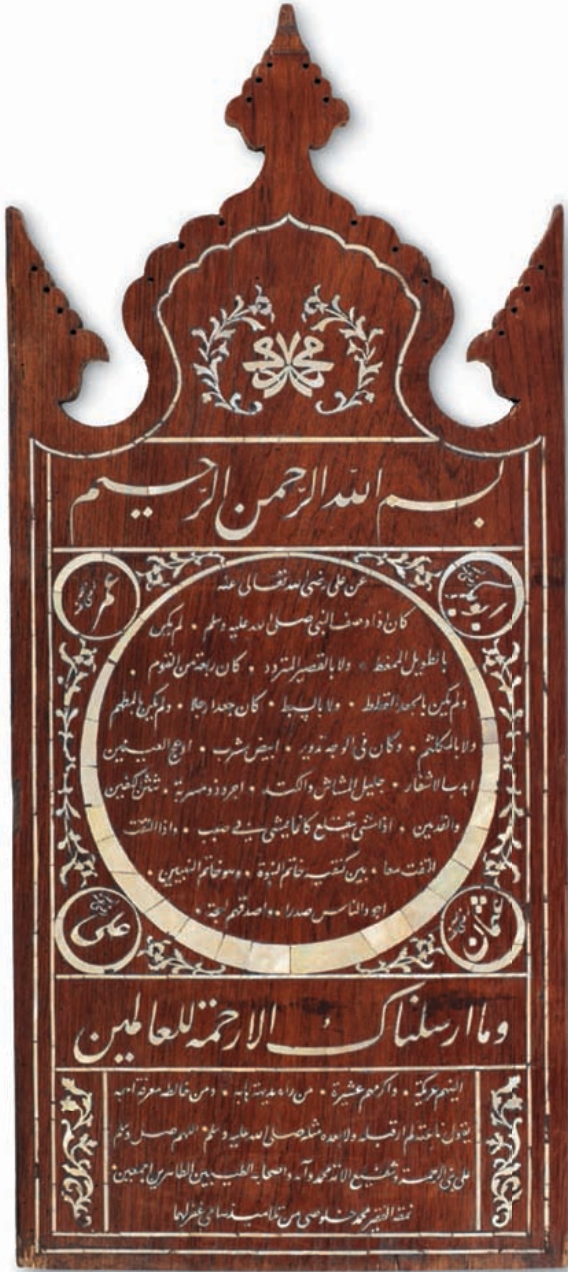 محمد
بسم الله الرحمن الرحيم
ابو بكر
عمر
عن علي رضي الله تعالى عنه
كان اذا وصف النبي صلى الله عليه وسلم ۰ لم يكن
بالطويل الممغط ۰ ولا بالقصير المتردد ۰ كان ربعة من القوم ۰
ولم يكن بالجعد القطط ۰ ولا بالسبط ۰ كان جعدا رجلا ۰ ولم يكن بالمطهم
ولا بالمكلثم ۰ وكان في الوجه تدوير ۰ ابيض مشرب ۰ ادعج العينين
اهدب الاشفار ۰ جليل المشاش والكتد ۰ اجرد ذو مسربة ۰ شثن الكفين
والقدمين ۰ اذا مشى يتقلع كانما يمشي في صبب ۰ واذا التفت
التفت معا ۰ بين كتفيه خاتم النبوة ۰ وهو خاتم النبيين ۰
اجود الناس صدرا ۰ واصدقهم لهجة ۰
عثمان
علي
وما ارسلناك الا رحمة للعالمين
والينهم عريكة ۰ واكرمهم عشيرة ۰ من راه بديهة هابه ۰ ومن خالطه معرفة احبه
يقول ناعته لم ار قبله ولا بعده مثله صلى الله عليه وسلم ۰ اللهم صل وسلم
على نبي الرحمة وشفيع الامة محمد وآله واصحابه الطيبين الطاهرين اجمعين
نمقه الفقير محمد خلوصي من تلاميذ سامي غفر لهما